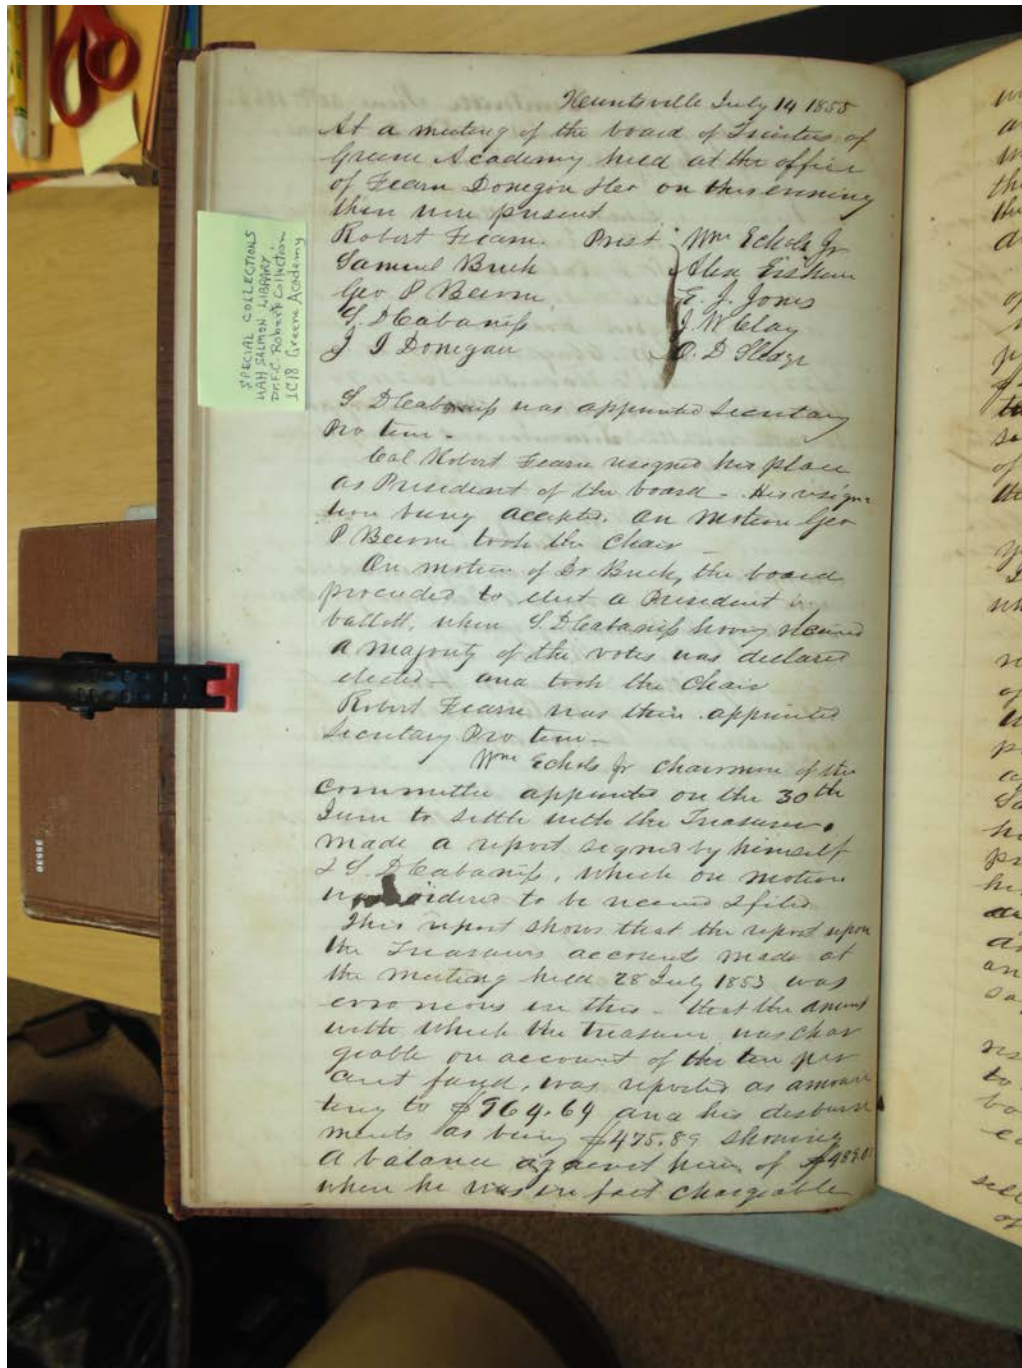 Huntsville July 14 1855
At a meeting of the board of Trustees of
Greene Academy held at the office
of Fearn Donegan & co on this evening
there were present
Robert Fearn. Prest. Wm Echols Jr
Samuel Breck Alex Erskine
Geo P Beirne E. J. Jones
S. D Cabaniss J. W Clay
J I Donegan O. D Sledge
S. D Cabaniss was appointed Secretary
Pro tem.
Col Robert Fearn resigned his place
as President of the board - His resigna
tion being accepted. On motion Geo
P Beirne took the Chair
On motion of Dr Breck, the board
proceeded to elect a President by
ballott, when S. D Cabaniss having received
a majority of the votes was declared
elected - and took the Chair
Robert Fearn was then appointed
Secretary Pro tem -
Wm Echols Jr chairman of the
Committee appointed on the 30th
June to settle with the Treasurer
made a report signed by himself
& S. D Cabaniss, which on motion
was ordered to be received & filed
This report shows that the report upon
the Treasurers accounts made at
the meeting held 28 July 1853 was
erroneous in this - that the amount
with which the treasurer was char
geable on account of the ten per
cent fund, was reported as amoun
ting to $964.69 and his disburse
ments as being $475.89 showing
a balance against him of
when he was in fact chargeable
SPECIAL COLLECTIONS
UAH SALMON LIBRARY
Dr. F.C. Roberts Collection
1C18 Greene Academy